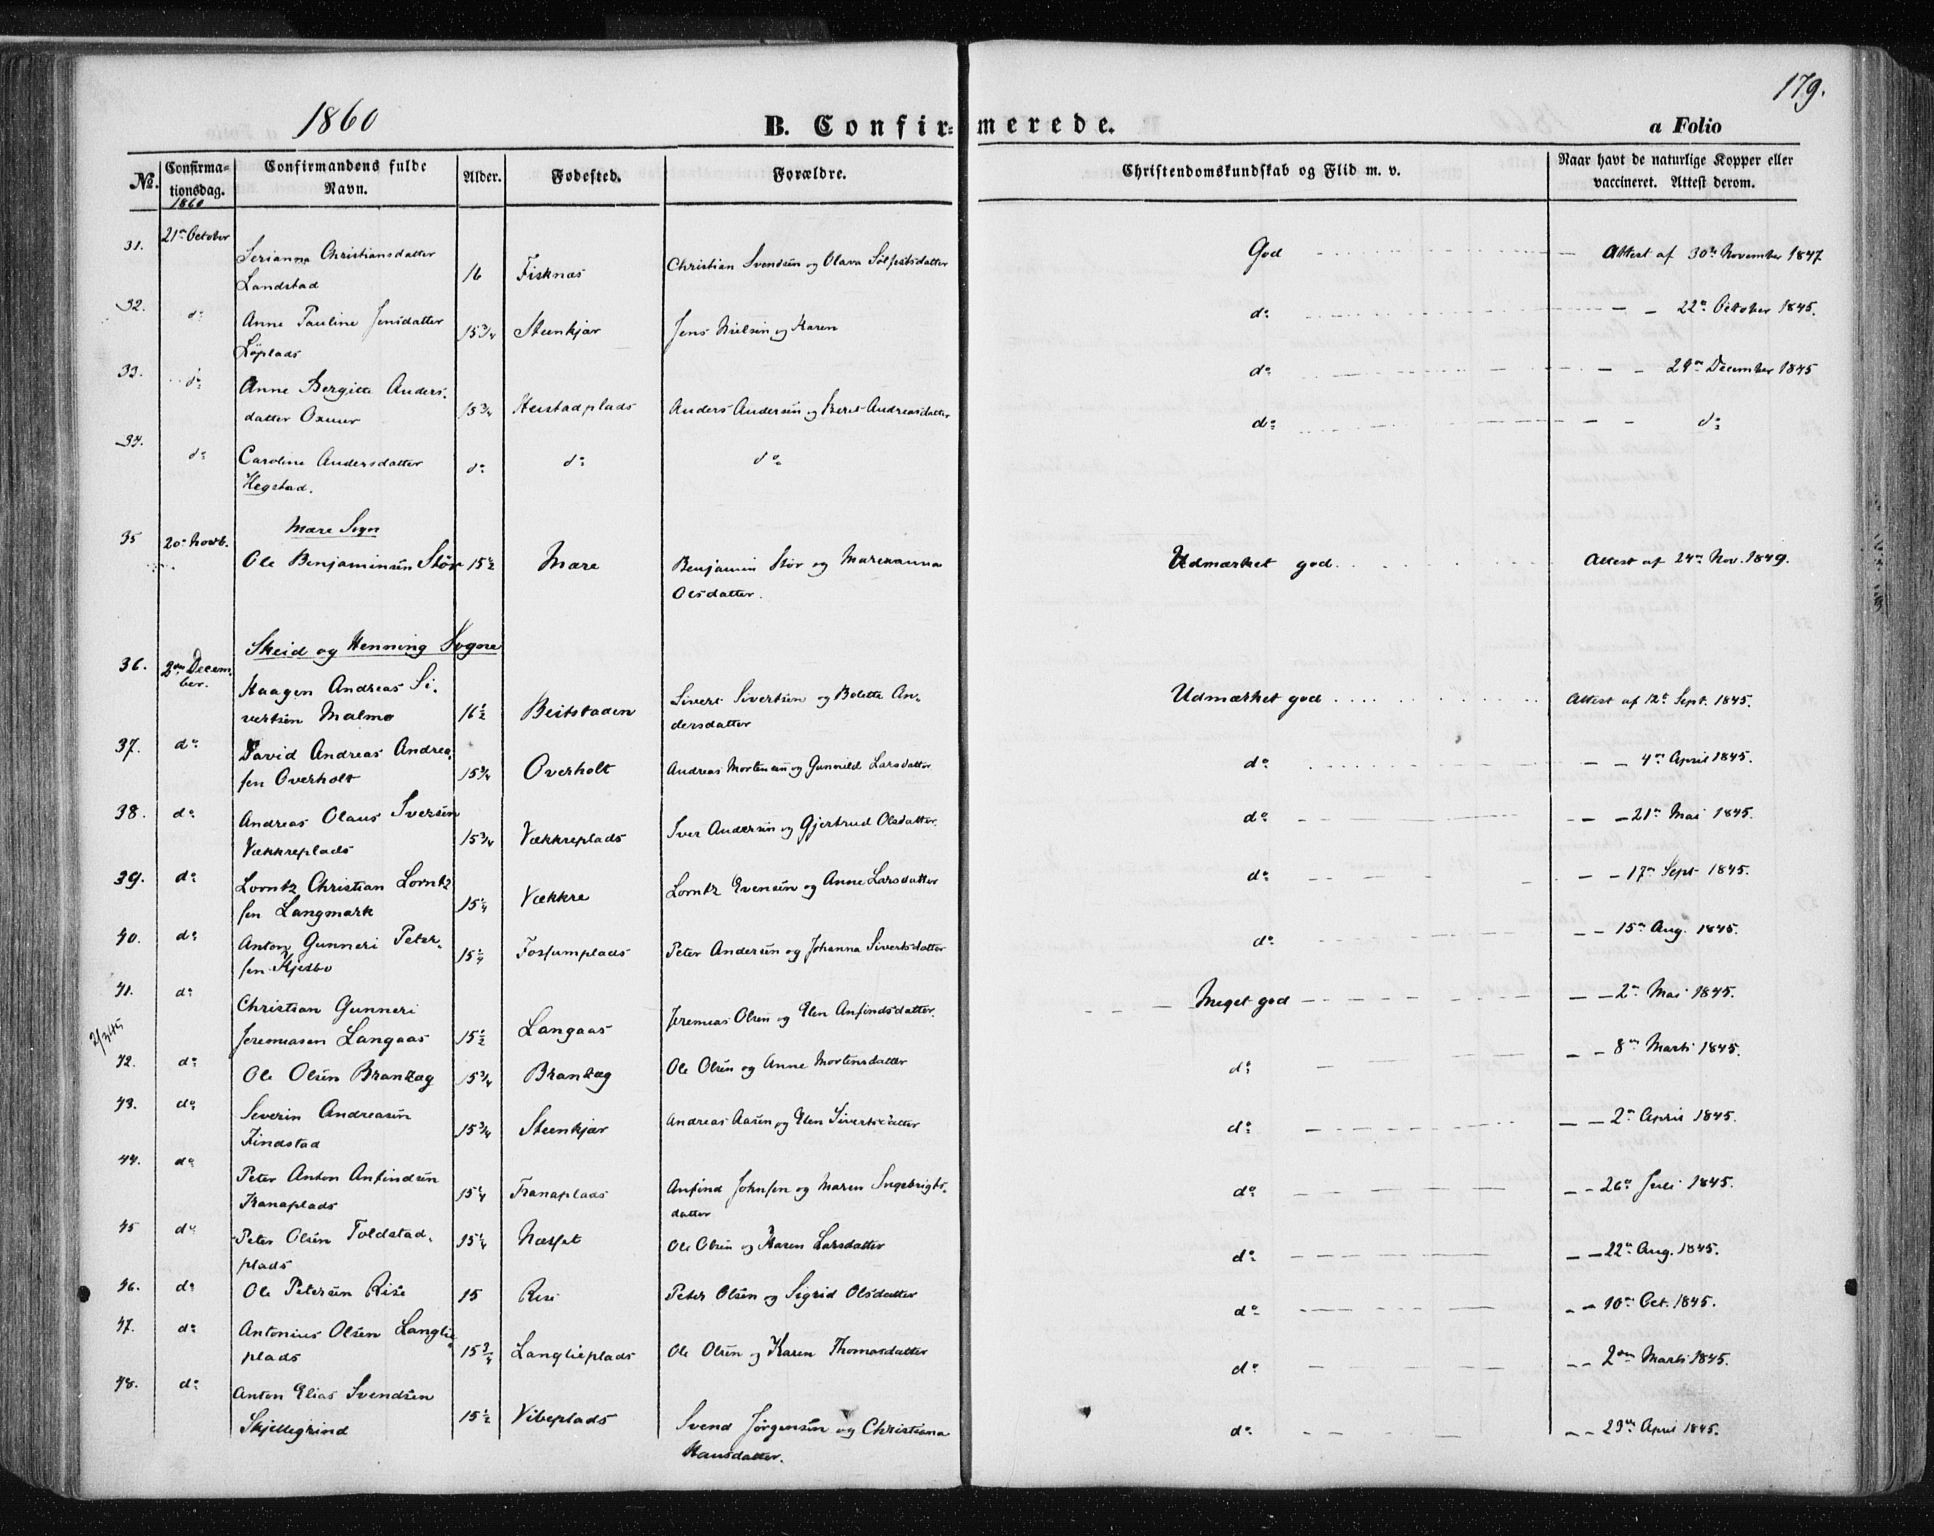 1860
179.
B. Confirmerede.
a Folio
No. Confirmationsdag. Confirmandens fulde Navn. Alder. Fødested. Forældre. Christendomskundskab og Flid m. v. Naar havt de naturlige Kopper eller vaccineret. Attest derom.
1860
31. 21de October Serianna Christiansdatter Landstad 16 Fisknæs Christian Svendsen og Olava God Attest af 30te November 1847
32. do Anne Pauline Jensdatter Løplads 15 3/4 Steenkjær Jens Nielsen og Karen do — — 22de October 1845.
33. do Anne Bergitte Andersdatter Oxmur 15 3/4 Heistadplads Anders Andersen og Beret Andreasdatter do — — 29de December 1845
34. do Caroline Andersdatter Hegstad. do do do do — — do
Mære Sogn
35 20de Novb. Ole Benjaminsen Stør 15 1/2 Mære Benjamin Stør og Marexanna Olsdatter. Udmærket god. Attest af 24de Nov. 1849.
Skeid og Henning Sogne
36. 2den December. Haagen Andreas Sivertsen Malmo 16 1/2 Beitstaden Sivert Sivertsen og Bolette Andersdatter Udmærket god Attest af 12te Sept. 1845.
37. do David Andreas Andreasen Overholt 15 3/4 Overholt Andreas Mortensen og Gunnild Larsdatter do — — 4de April 1845.
38. do Andreas Olaus Iversen Vækkreplads 15 3/4 Vækkreplads Iver Andersen og Gjertrud Olsdatter. do — — 21de Mai 1845.
39. do Lorntz Christian Lorntzsen Langmark 15 1/4 Vækkre Lorntz Evensen og Anne Larsdatter do — — 17de Sept 1845.
40. do Anton Gunneri Petersen Kjesbo 15 1/4 Fossumplads Peter Andersen og Johanna Sivertsdatter do — — 15de Aug. 1845.
41. do Christian Gunneri Jeremiasen Langaas 15 1/2 Langaas Jeremias Olsen og Elen Anfindsdatter. Meget god — — 2de Mai 1845.
42. do Ole Olsen Brandtzæg 15 3/4 Brandtzæg Ole Olsen og Anne Mortensdatter do — — 8de Marts 1845.
43. do Severin Andreasen Findstad 15 3/4 Steenkjær Andreas Aasen og Elen Sivertsdatter do — — 2de April 1845.
44. do Peter Anton Anfindsen Tranaplads 15 1/4 Tranaplads Anfind Johnsen og Maren Ingebrigtsdatter do — — 26de Juli 1845.
45 do Peter Olsen Toldstadplads 15 1/4 Næsset Ole Olsen og Karen Larsdatter do — — 22de Aug. 1845.
46. do Ole Petersen Rise 15 Rise Peter Olsen og Sigrid Olsdatter do — — 10de Oct. 1845.
47. do Antonius Olsen Langlieplads 15 3/4 Langlieplads Ole Olsen og Karen Thomasdatter do — — 2den Marts 1845.
48. do Anton Elias Svendsen Skjellegrind 15 1/2 Vibeplads Svend Jørgensen og Christiana Hansdatter. do — — 23de April 1845.